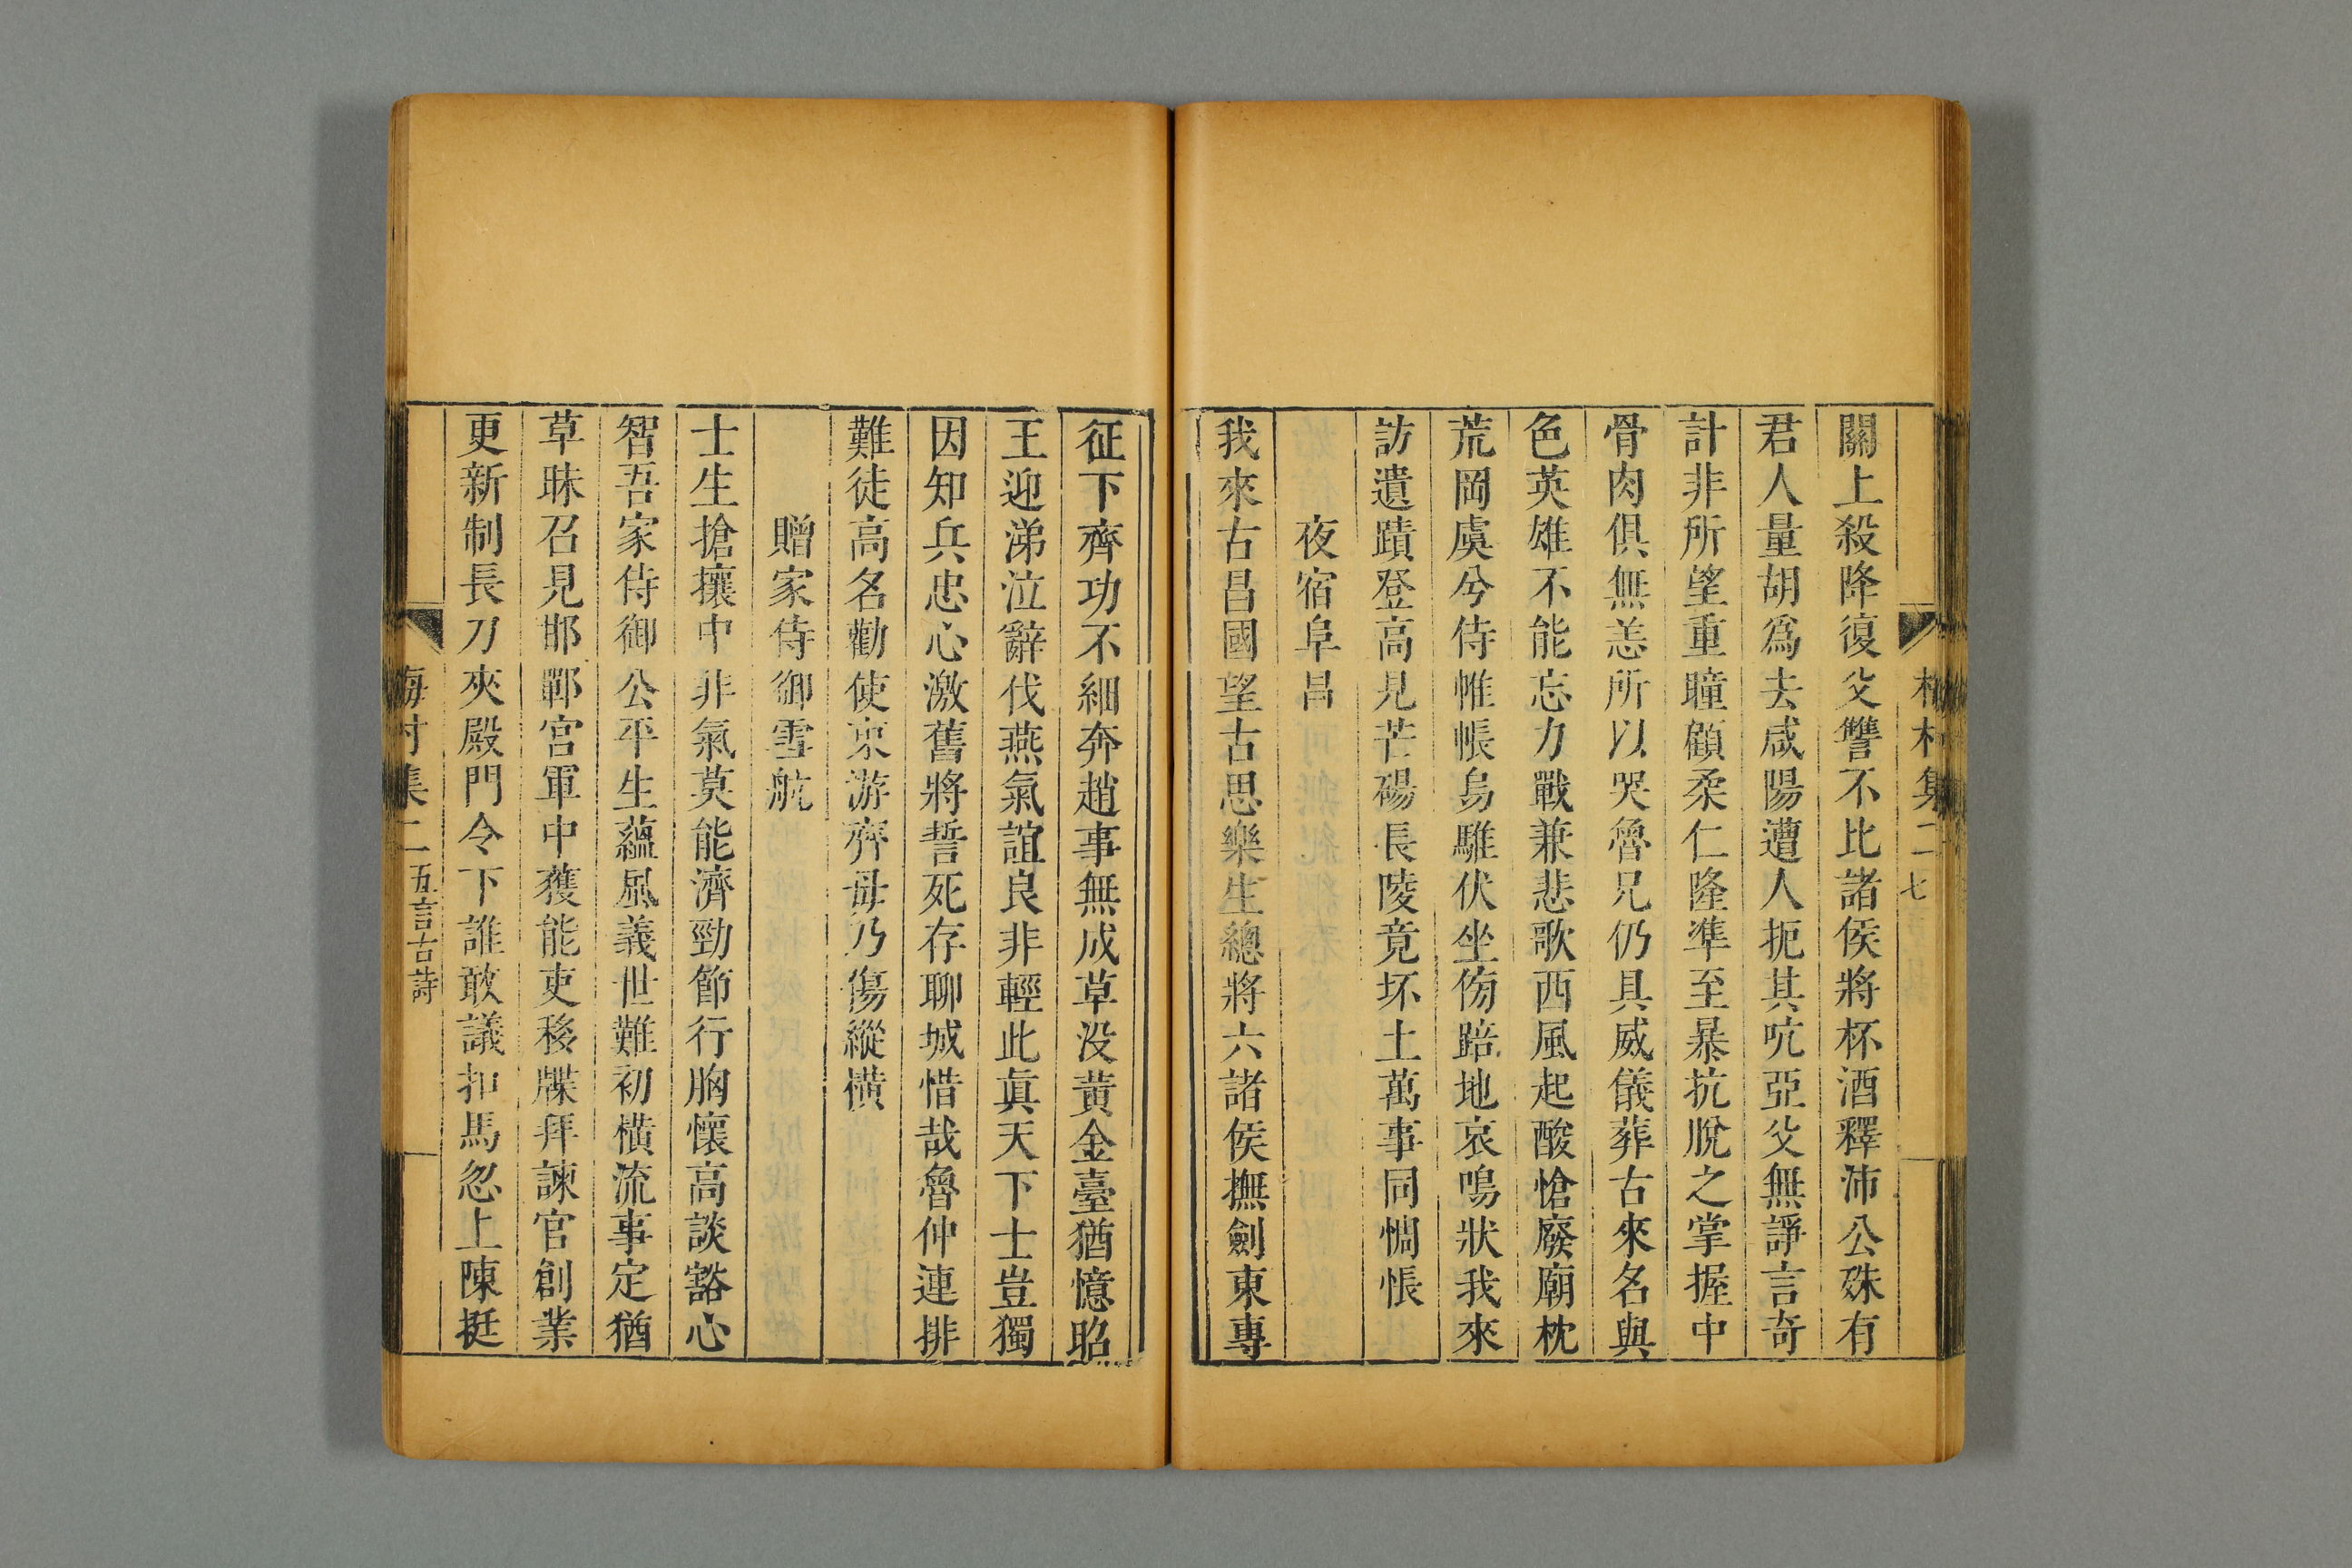 村集二 七
關上殺降復父讐不比諸侯將杯酒釋沛公殊有
君人量胡爲去咸陽遭人扼其吭亞父無諍言奇
計非所望重瞳顧柔仁隆準至暴抗脫之掌握中
骨肉俱無恙所以哭魯兄仍具威儀葬古來名與
色英雄不能忘力戰兼悲歌西風起酸愴廢廟枕
荒岡虞兮侍帷帳烏騅伏坐傍踣地哀鳴狀我來
訪遺蹟登高見芒碭長陵竟坏土萬事同惆悵
夜宿阜昌
我來古昌國望古思樂生總將六諸侯撫劍東專
征下齊功不細奔趙事無成草没黄金臺猶憶昭
王迎涕泣辭伐燕氣誼良非輕此眞天下士豈獨
因知兵忠心激舊將誓死存聊城惜哉魯仲連排
難徒高名勸使東游齊毋乃傷縱横
贈家侍御雪航
士生搶攘中非氣莫能濟勁節行胸懷高談豁心
智吾家侍御公平生蘊風義世難初横流事定猶
草昧召見邯鄲宮軍中獲能吏移牒拜諫官創業
更新制長刀夾殿門令下誰敢議扣馬忽上陳挺
梅村集二 五言古詩